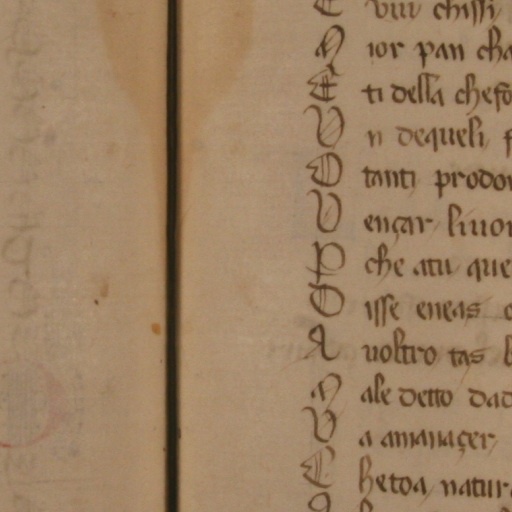 E viui chissi
M ior pan cha
E ti della chefo
V n dequeli f
O tanti prodo
V ençar liuor
P che atu que
D isse eneas
A uostro tas b
M ale detto dad
V a amanaçer
C hetoa natur